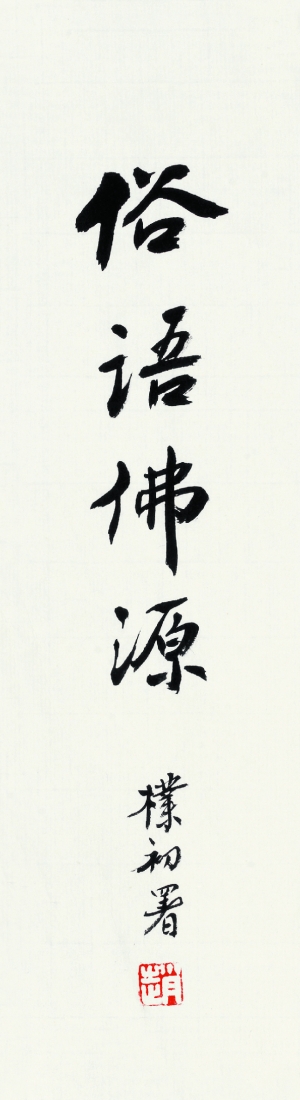 俗语佛源
樸初署
趙